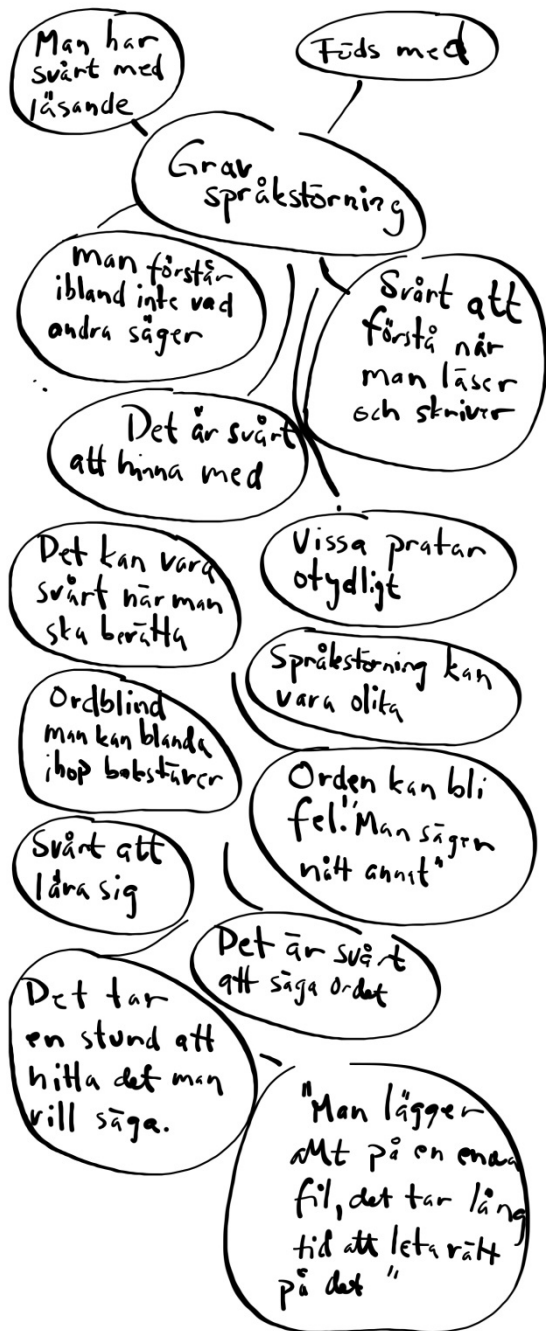 Man har
svårt med
läsande
Föds med
Grav
språkstörning
man förstår
ibland inte vad
andra säger
Svårt att
förstå når
man läser
och skriver
Det är svårt
att hinna med
Vissa pratar
otydligt
Det kan vara
svårt när man
ska berätta
Språkstörning kan
vara olika
Ordblind
man kan blanda
ihop bokstäver
Orden kan bli
fel. "Man säger
nått annat"
Svårt att
lära sig
Det är svårt
att säga ordet
Det tar
en stund att
hitta det man
vill säga.
"Man lägger
allt på en enda
fil, det tar lång
tid att leta rätt
på det"